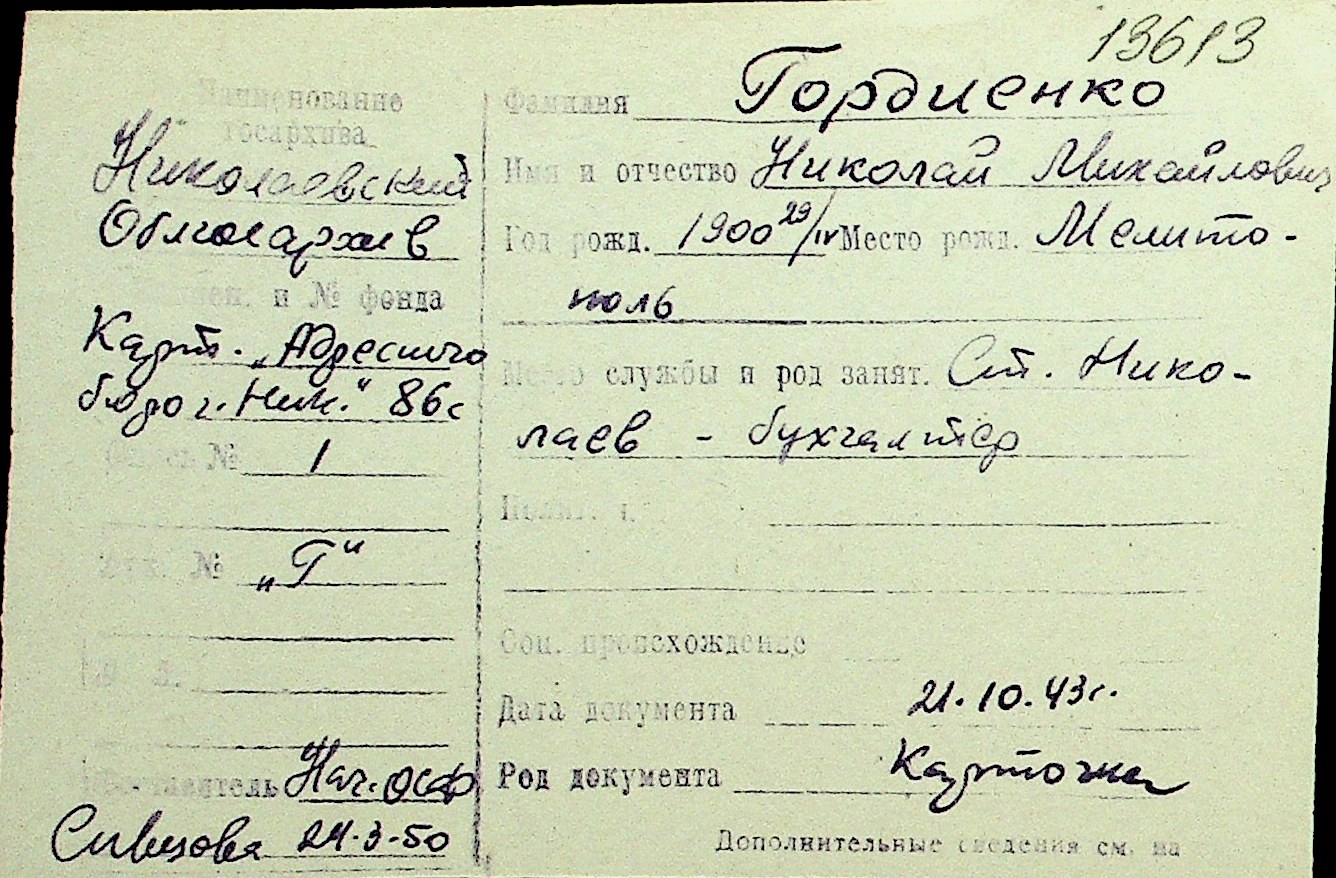 13613
Наименование
госархива
Николаевский
Облгосархив
и № фонда
Карт. „Адресного
бюро г. Ник.“ 86с
№ 1
№ „Г“
Нач. ОСФ
24-3-50
Фамилия Гордиенко
Имя и отчество Николай Михайлович
Год рожд. 1900 29/IV Место рожд. Мелито-
поль
Место службы и род занят. Ст. Нико-
лаев - бухгалтер
Соц. происхождение
Дата документа 21.10.43г.
Род документа Карточка
Дополнительные сведения см. на